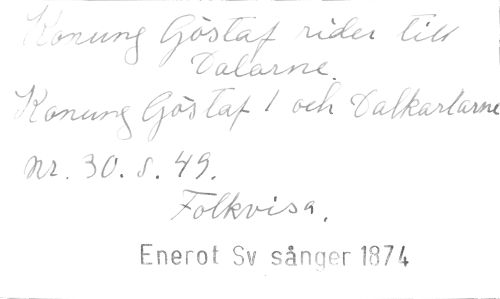 Konung Göstaf rider till
Dalarne.
Konung Göstaf I och Dalkarlarne
Nr. 30. s. 49.
Folkvisa.
Enerot Sv sånger 1874